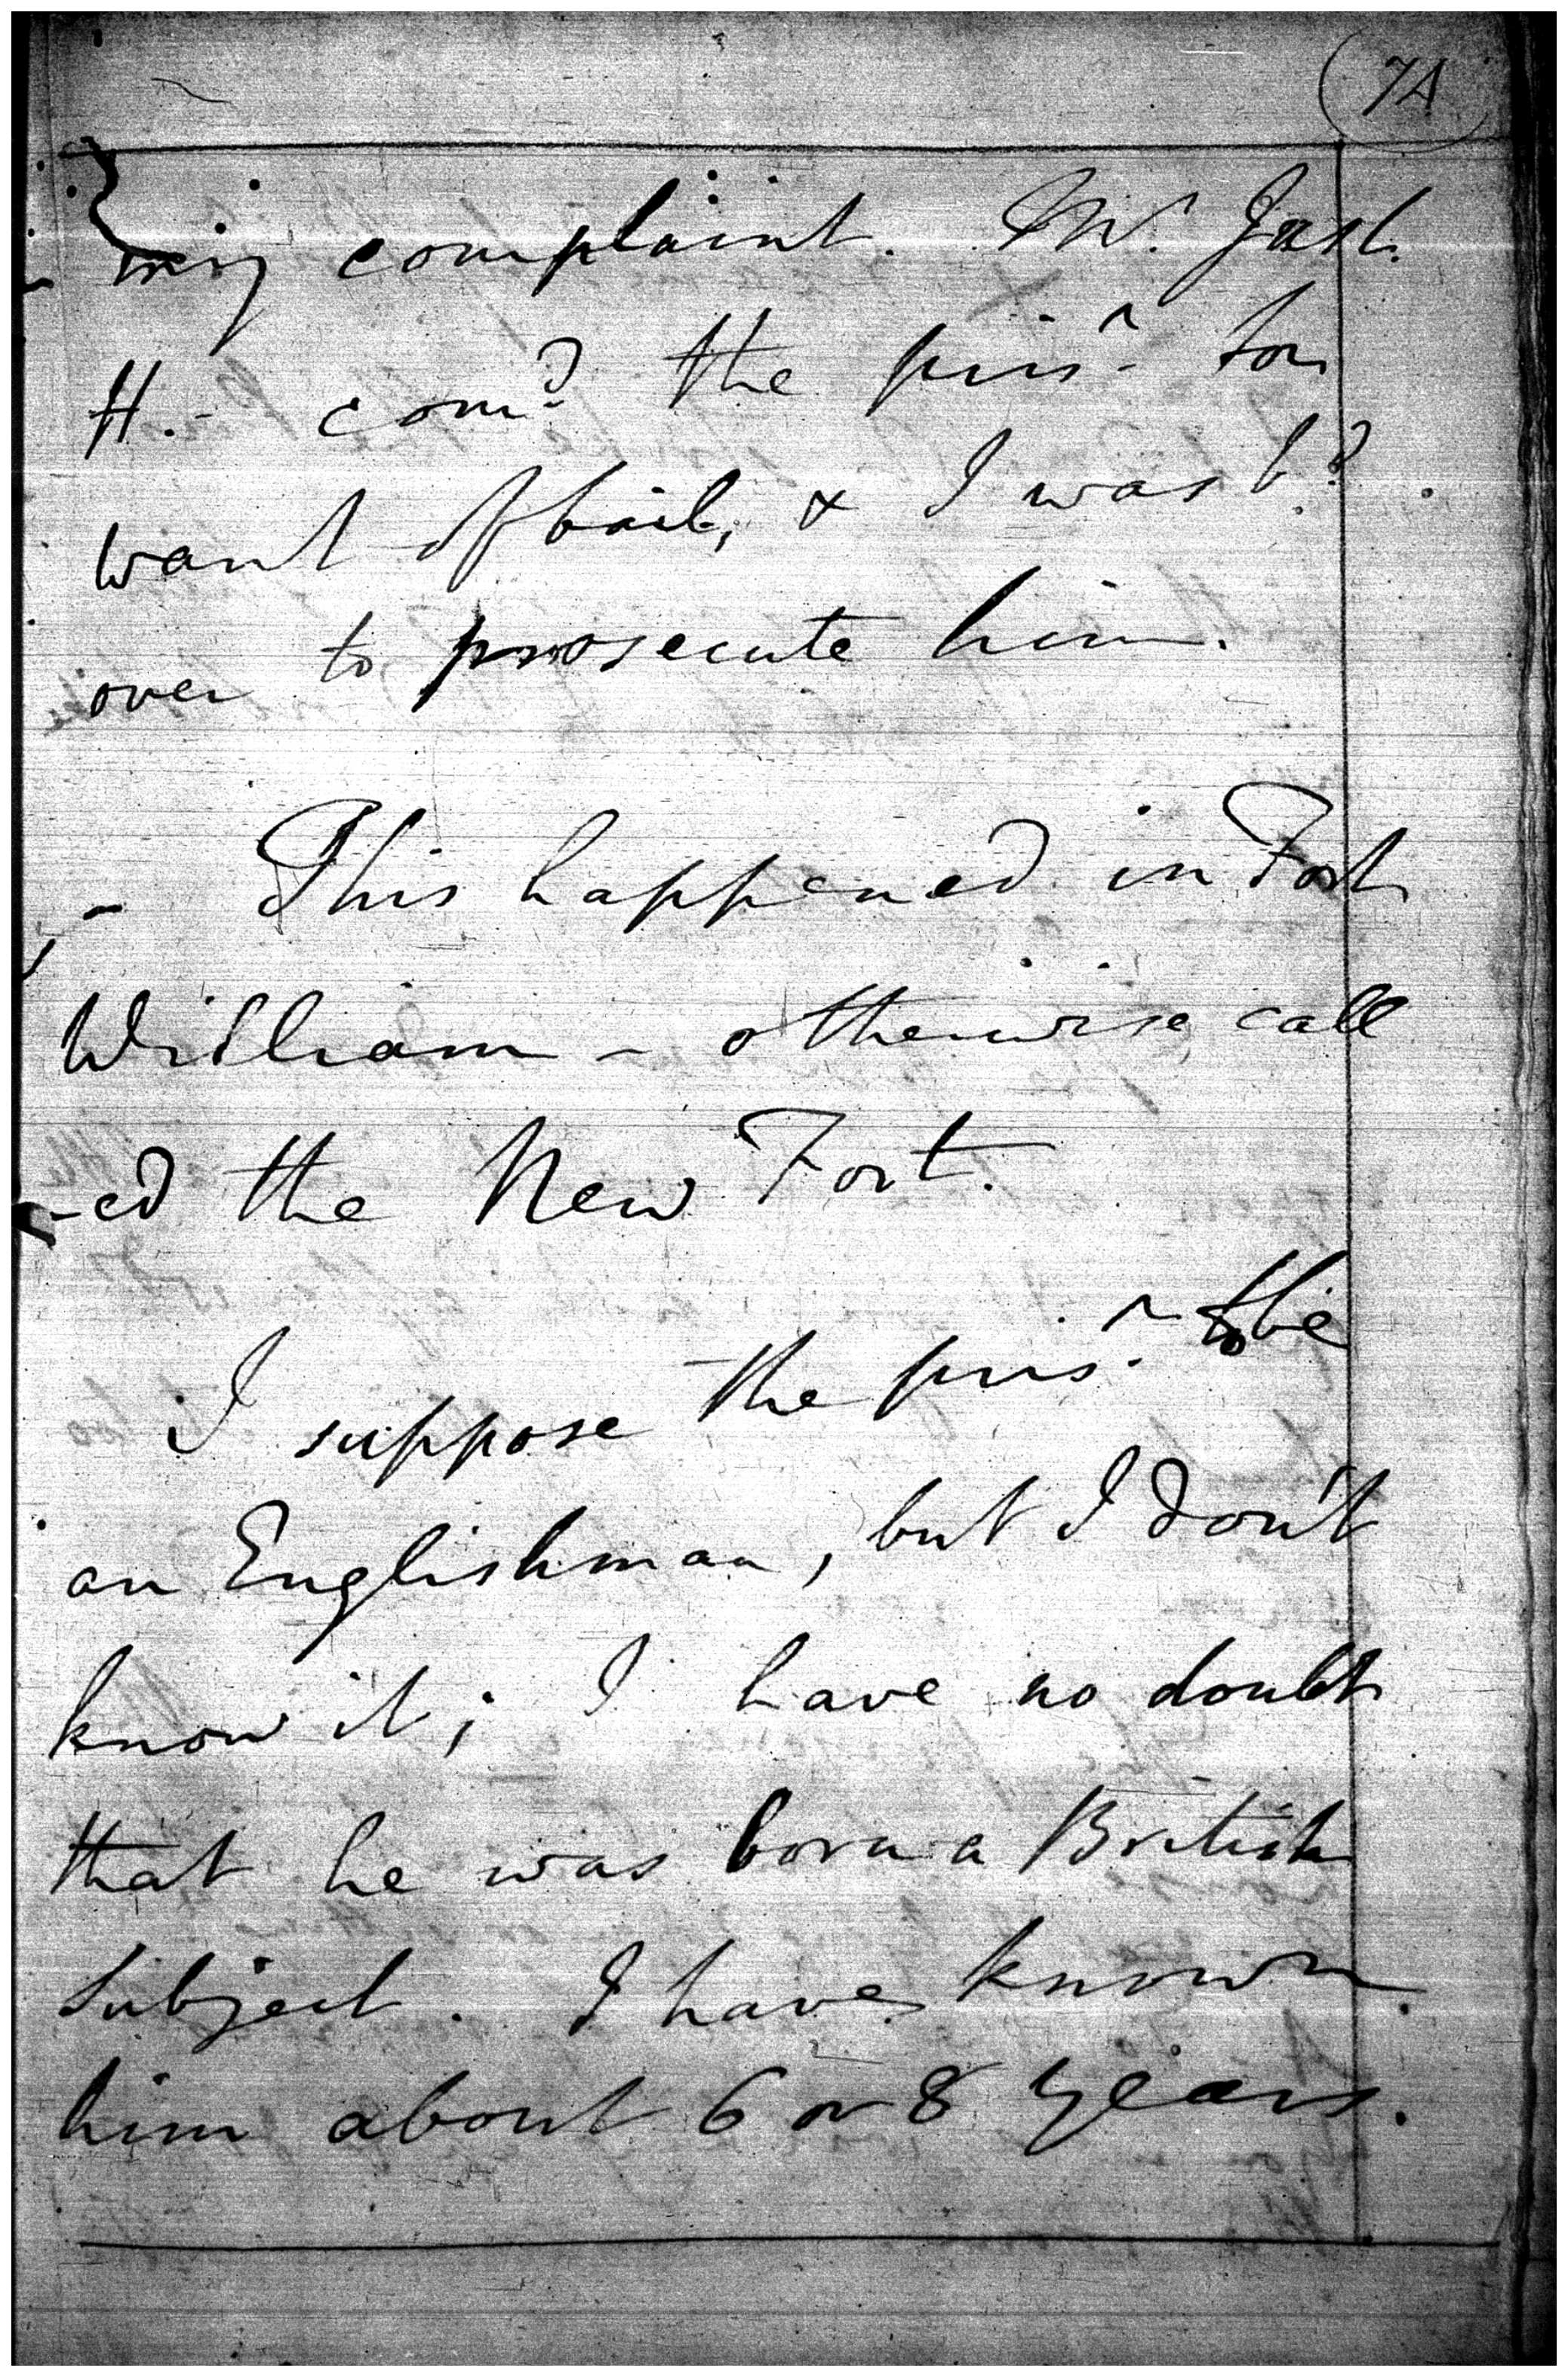 7A
my complaint. Mr. Just.
H. - com.d the pris.r for
want of bail, & I was b.d
over to prosecute him.
This happened in Fort
William - otherwise call
-ed the New Fort.
I suppose the pris.r to be
an Englishman, but I don't
know it; I have no doubt
that he was born a British
subject. I have known
him about 6 or 8 years.